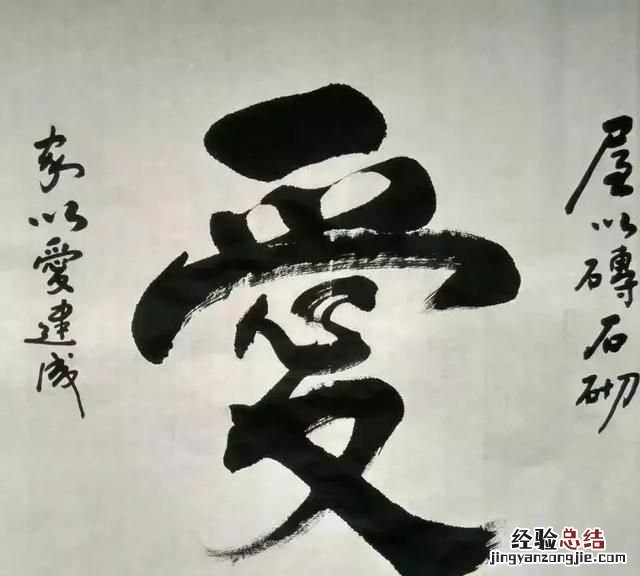 屋以磚石砌
愛
家以愛建成
经验总结
jingyanzongjie.com